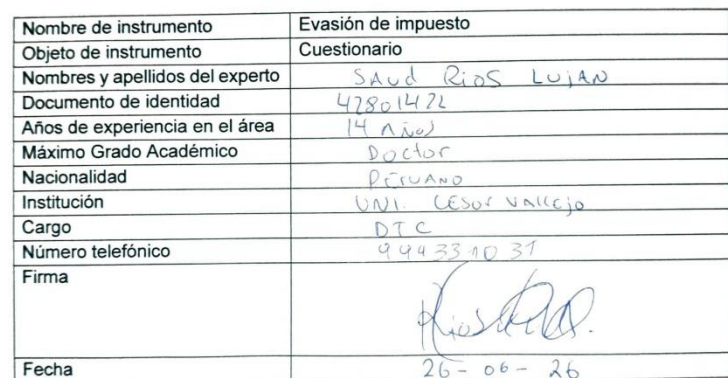 Nombre de instrumento Evasión de impuesto
Objeto de instrumento Cuestionario
Nombres y apellidos del experto SAUd RIOS LUJAN
Documento de identidad
Años de experiencia en el área 14 Años
Máximo Grado Académico Doctor
Nacionalidad PErUANO
Institución UNI. CESar VAllEjo
Cargo DTC
Número telefónico 994331031
Firma
Fecha 26 - 06 - 26